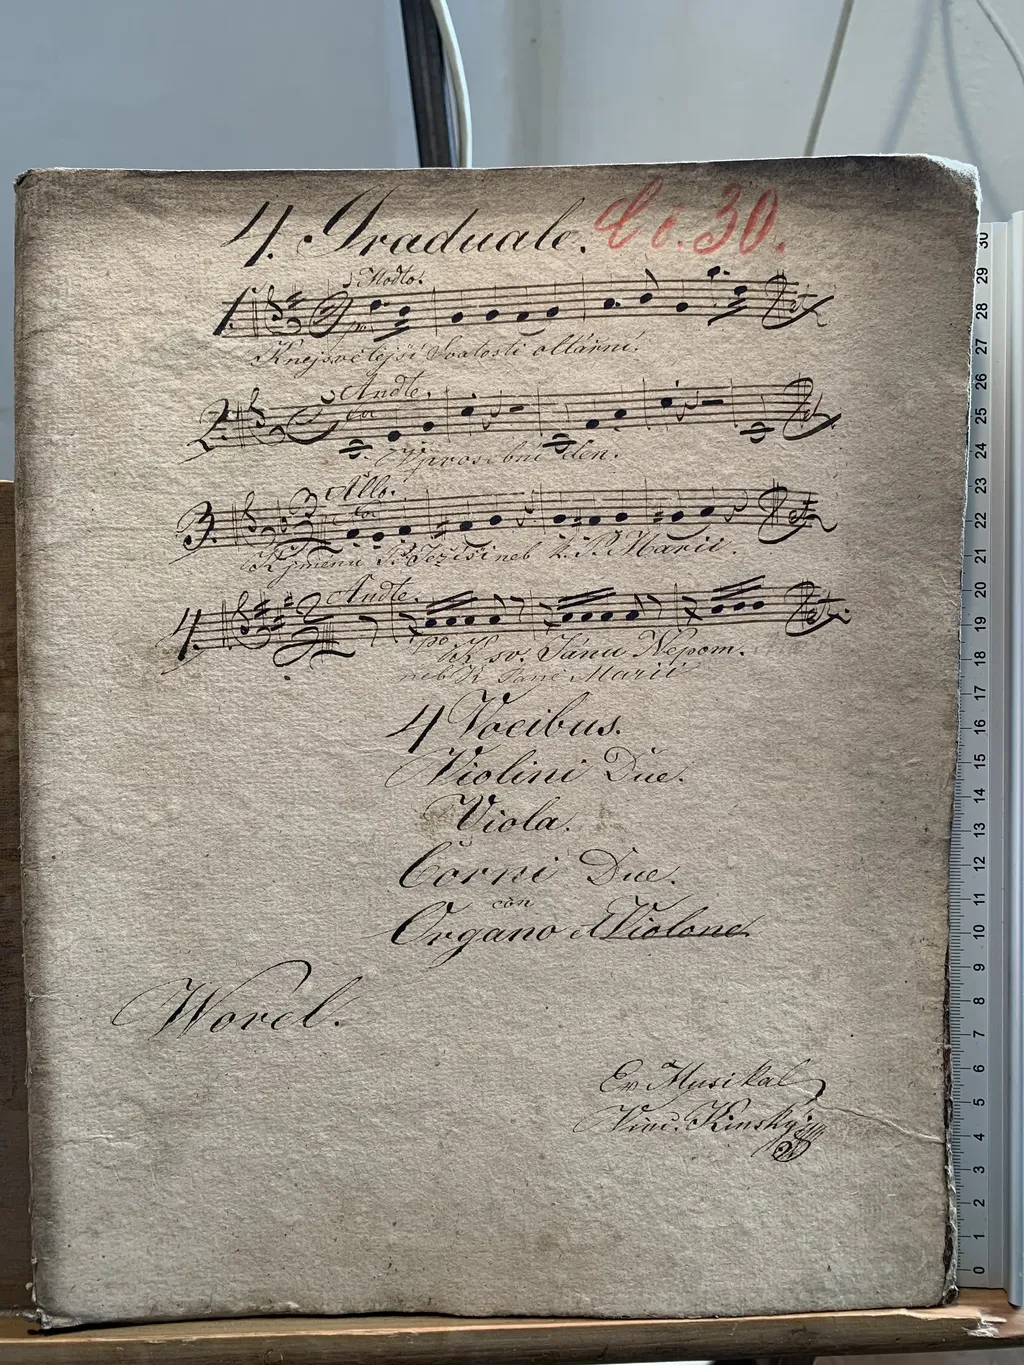 4. Graduale. Lc. 30.
1. Modto.
K nejsvětější Svatosti oltární.
2. Andte.
V prosební den.
3. Allo.
K jmenu P. Ježiši neb k P. Marii.
4. Andte.
K sv. Jánu Nepom.
neb K Marii
4 Vocibus.
Violini Due.
Viola.
Corni Due.
con
Organo et Violone.
Worel.
Ex Musikal
Vinc. Kinský
0 1 2 3 4 5 6 7 8 9 10 11 12 13 14 15 16 17 18 19 20 21 22 23 24 25 26 27 28 29 30